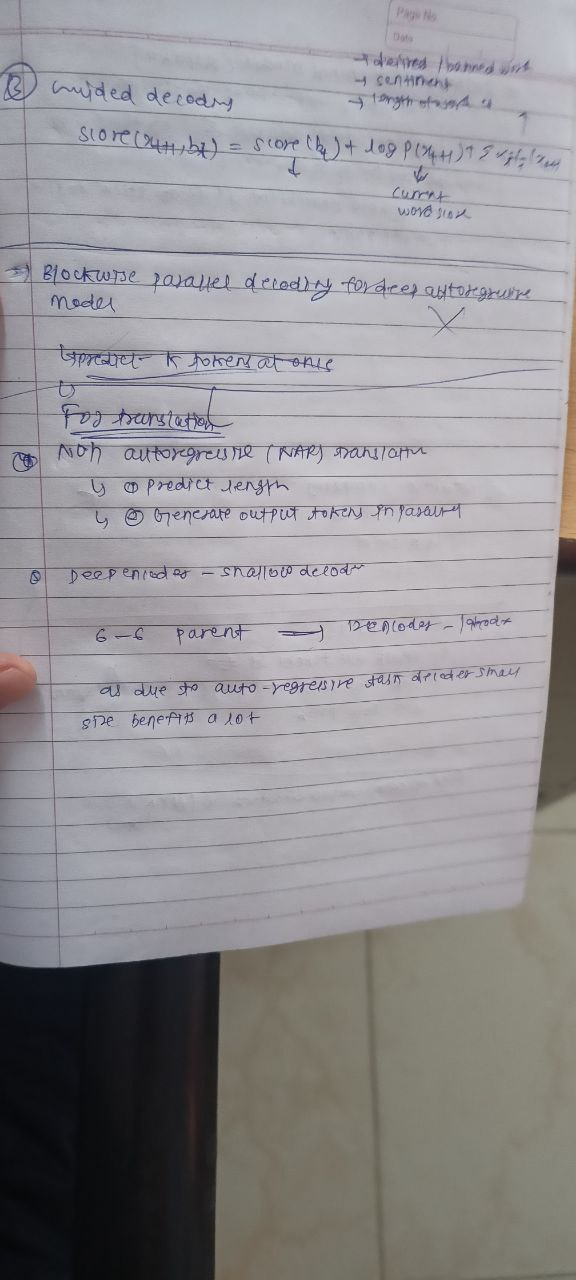 Page No
Date
→ desired / banned word
→ sentiment
→ length of word
③ Guided decoding
score(x_{t+1}, b_t) = score(b_t) + log P(x_{t+1}) + Σ
current
word score
⇒ Blockwise parallel decoding for deep autoregressive
model
↳ predict K tokens at once
For translation
Non autoregressive (NAR) translation
↳ ① predict length
↳ ② Generate output tokens in parallel
Deep encoder - shallow decoder
6-6 parent →
as due to auto-regressive task decoder small
size benefits a lot